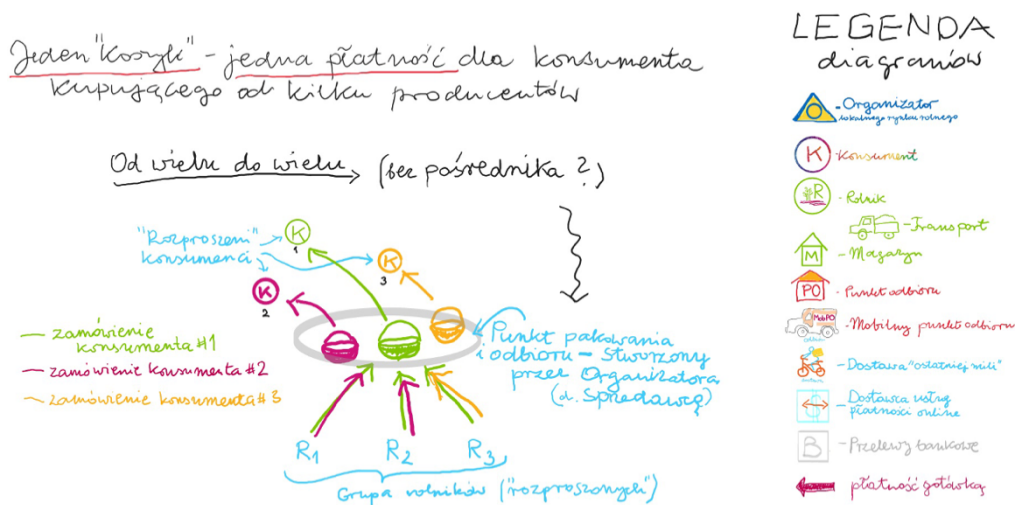 Jeden "koszyk" - jedna płatność dla konsumenta
kupującego od kilku producentów
Od wielu do wielu (bez pośrednika?)
"Rozproszeni"
konsumenci
K
1
K
3
K
2
zamówienie
konsumenta #1
zamówienie konsumenta #2
zamówienie konsumenta #3
Punkt pakowania
i odbioru - stworzony
przez Organizatora
Sprzedawcę)
R1 R2 R3
Grupa rolników ("rozproszonych")
LEGENDA
diagramów
- Organizator
lokalnego rynku rolnego
K - Konsument
R - Rolnik
- Transport
M - Magazyn
PO - Punkt odbioru
MobPO - Mobilny punkt odbioru
- Dostawa "ostatniej mili"
$ - Dostawca usług
płatności online
B - Przelewy bankowe
płatność gotówką